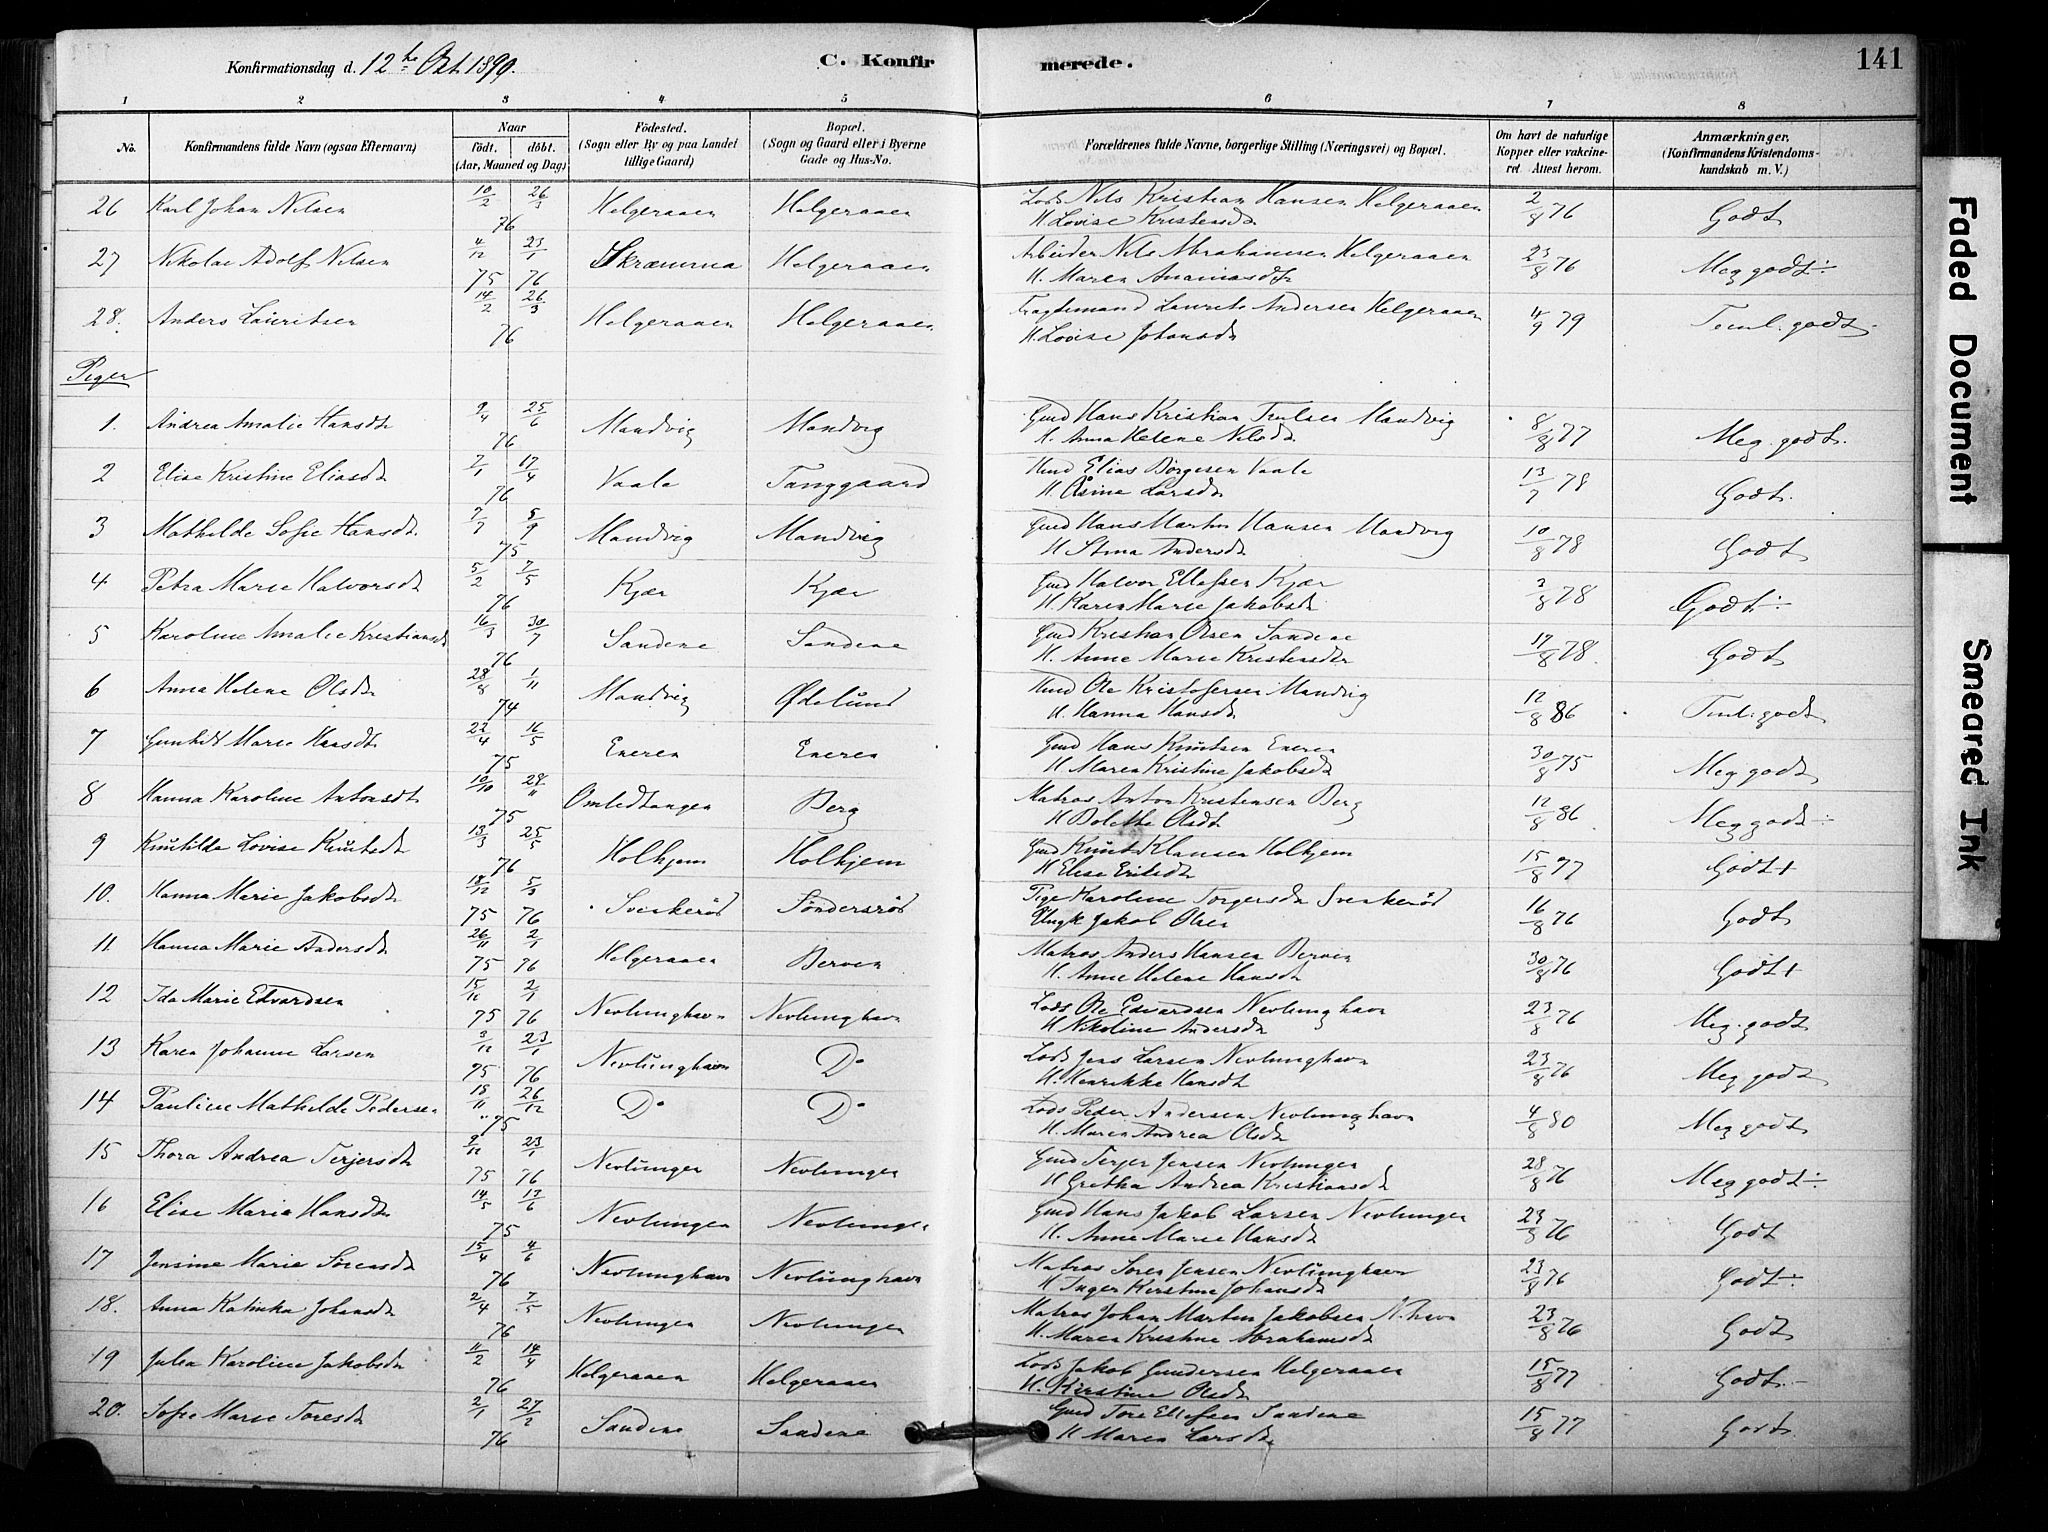 Konfirmationsdag d. 12te Okt. 1890.
C. Konfirmerede.
141
1 2 3 4 5 6 7 8
No. Konfirmandens fulde Navn (ogsaa Efternavn) Naar födt. döbt. (Aar, Maaned og Dag) Födested. (Sogn eller By og paa Landet tillige Gaard) Bopæl. (Sogn og Gaard eller i Byerne Gade og Hus-No. Forældrenes fulde Navne, borgerlige Stilling (Næringsvei) og Bopæl. Om havt de naturlige Kopper eller vakcineret. Attest herom. Anmærkninger. (Konfirmandens Kristendomskundskab m. V.)
26 Karl Johan Nilsen 10/2 26/3 76 Helgeraaen Helgeraaen Lods Nils Kristian Hansen Helgeraaen 2/8 76 Godt
H. Lovise Kristensdt
27 Nikolai Adolf Nilsen 4/12 75 23/1 76 Skræmma Helgeraaen Arbeider Nils Abrahamsen Helgeraaen 23/8 76 Meg godt ÷
H. Maren Ananiasdt
28. Anders Lauritsen 14/2 26/3 76 Helgeraaen Helgeraaen Fragtemand Laurits Andersen Helgeraaen 4/9 79 Teml. godt
H. Lovise Johansdt
Piger
1. Andrea Amalie Hansdt 9/4 25/6 76 Mandvig Mandvig Gmd Hans Kristian Trulsen Mandvig 8/8 77 Meg. godt.
H. Anna Helene Nilsdt
2 Elise Kristine Eliasdt 7/1 17/4 76 Vaale Tanggaard Hmd Elias Börgesen Vaale 13/7 78 Godt.
H. Åsine Larsdt
3 Mathilde Sofie Hansdt. 7/7 5/9 75 Mandvig Mandvig Gmd Hans Martin Hansen Mandvig 10/8 78 Godt
H Stina Andersdt
4 Petra Marie Halvorsdt 5/2 7/5 76 Kjær Kjær Gmd Halvor Ellefsen Kjær 2/8 78 Godt ÷
H. Karen Marie Jakobsdt
5 Karoline Amalie Kristiansdt 16/3 30/7 76 Sandene Sandene Gmd Kristian Olsen Sandene 17/8 78. Godt
H. Anne Marie Kristensdtr
6 Anna Helene Olsdt 28/8 1/11 74 Mandvig Ødelund Hmd Ole Kristofersen Mandvig 12/8 86 Teml. godt
H. Hanna Hansdt
7 Gunhild Marie Hansdt 22/4 16/5 75 Eneren Eneren Gmd Hans Knutsen Eneren 30/8 75 Meg godt
H Maren Kristine Jakobsdt
8 Hanna Karoline Antonsdt 10/10 28/11 75 Omledtangen Berg Matros Anton Kristensen Berg 12/8 86 Meg godt ÷
H Bolette Olsdt
9 Knutilde Lovise Knutsdt 13/3 25/5 76 Holhjem Holhjem Gmd Knut Klausen Holhjem 15/8 77 Godt +
H Elise Eriksdt
10. Hanna Marie Jakobsdt 18/12 75 5/3 76 Sveskeröd Söndersröd Pige Karoline Torgersdt Sveskeröd 16/8 76 Godt
Ungk Jakob Olsen
11 Hanna Marie Andersdt 26/11 75 2/1 76 Helgeraaen Berven Matros Anders Hansen Berven 30/8 76 Godt +
H. Anne Helene Hansdt
12 Ida Marie Edvardsen 15/11 75 2/1 76 Nevlunghavn Nevlunghavn Lods Ole Edvardsen Nevlunghavn 23/8 76 Meg. godt
H Nikoline Andersdt
13 Karen Johanne Larsen 3/12 75 23/1 76 Nevlunghavn Do Lods Jens Larsen Nevlunghavn 23/8 76 Meg godt
H. Henrikke Hansdt
14 Pauline Mathilde Pedersen 18/11 26/12 75 Do Do Lods Peder Andersen Nevlunghavn 4/8 80 Meg godt
H. Maren Andrea Olsdt
15 Thora Andrea Terjersdt 9/12 75 23/1 76 Nevlungen Nevlungen Gmd Terjer Jensen Nevlungen 28/8 76 Meg godt ÷
H Gretha Andrea Kristiansdt
16 Elise Marie Hansdt 14/5 13/6 75 Nevlungen Nevlungen Gmd Hans Jakob Larsen Nevlungen 23/8 76 Godt
H. Anne Marie Hansdt
17 Jensine Marie Sörensdt 15/4 4/6 76 Nevlunghavn Nevlunghavn Matros Sören Jensen Nevlunghavn 23/8 76 Godt ÷
H Inger Kirstine Johansdt
18. Anna Katinka Johansdt 2/4 7/5 76 Nevlungen Nevlungen Matros Johan Martin Jakobsen N.havn 23/8 76 Godt
H. Maren Kristine Abrahamsdt
19 Julia Karoline Jakobsdt 11/2 14/4 76 Helgeraaen Helgeraaen Lods Jakob Gundersen Helgeraaen 15/8 77 Godt.
H. Kirstine Olsdt
20. Sofie Marie Toresdt 2/1 27/2 76 Sandene Sandene Gmd Tore Ellefsen Sandene 15/8 77 Godt
H Maren Larsdt
Faded Document
Smeared Ink